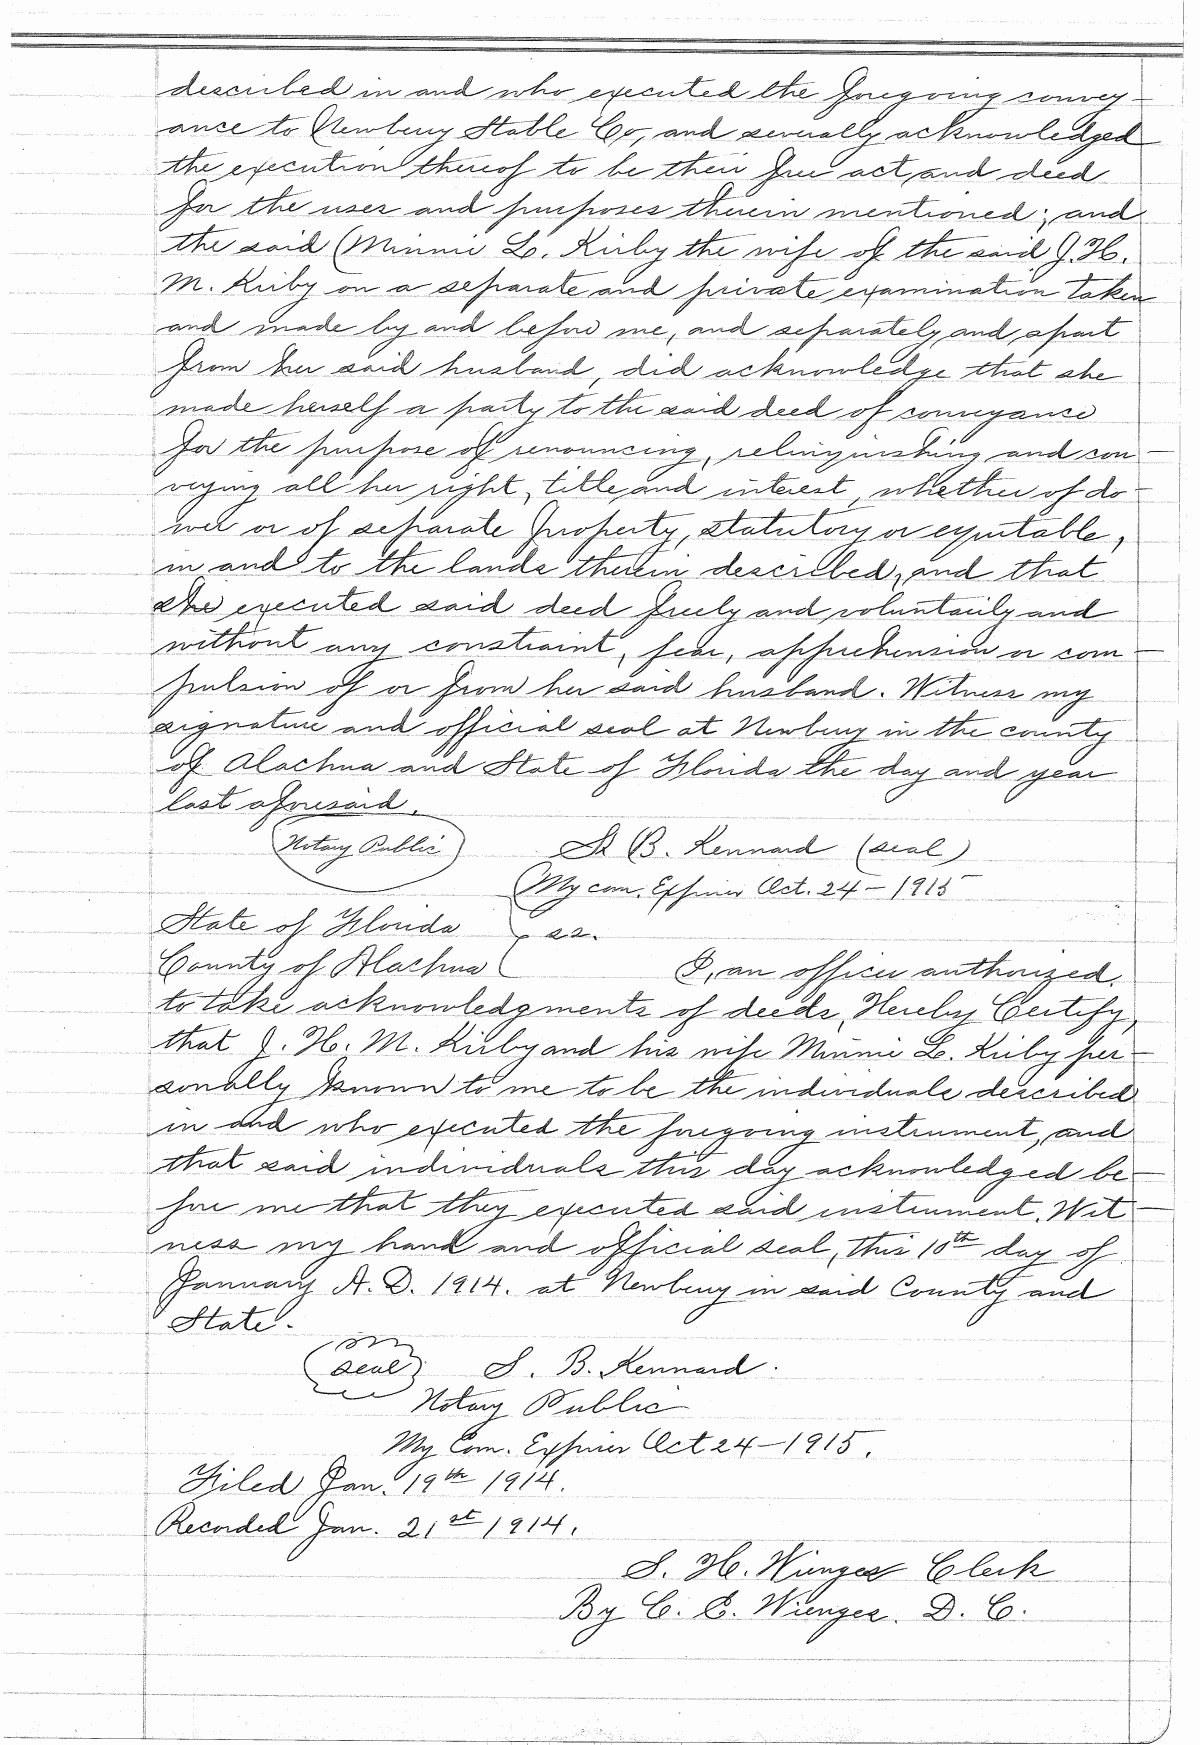 described in and who executed the foregoing convey-
ance to Newbery Stable Co, and severally acknowledged
the execution thereof to be their free act and deed
for the uses and purposes therein mentioned; and
the said Minnie L. Kirby the wife of the said J. H.
M. Kirby on a separate and private examination taken
and made by and before me, and separately and apart
from her said husband, did acknowledge that she
made herself a party to the said deed of conveyance
for the purpose of renouncing, relinquishing and con-
veying all her right, title and interest, whether of do-
wer or of separate property, statutory or equitable,
in and to the lands therein described, and that
she executed said deed freely and voluntarily and
without any constraint, fear, apprehension or com-
pulsion of or from her said husband. Witness my
signature and official seal at Newbery in the county
of Alachua and State of Florida the day and year
last aforesaid.
Notary Public S. B. Kennard (seal)
My com. Expires Oct. 24-1915
State of Florida } ss.
County of Alachua I, an officer authorized
to take acknowledgments of deeds, Hereby Certify,
that J. H. M. Kirby and his wife Minnie L. Kirby per-
sonally known to me to be the individuals described
in and who executed the foregoing instrument, and
that said individuals this day acknowledged be-
fore me that they executed said instrument. Wit-
ness my hand and official seal, this 10th day of
January A. D. 1914. at Newbery in said County and
State.
(seal) S. B. Kennard.
Notary Public
My Com. Expires Oct 24-1915.
Filed Jan. 19th 1914.
Recorded Jan. 21st 1914.
S. H. Wienges Clerk
By C. E. Wienges. D. C.